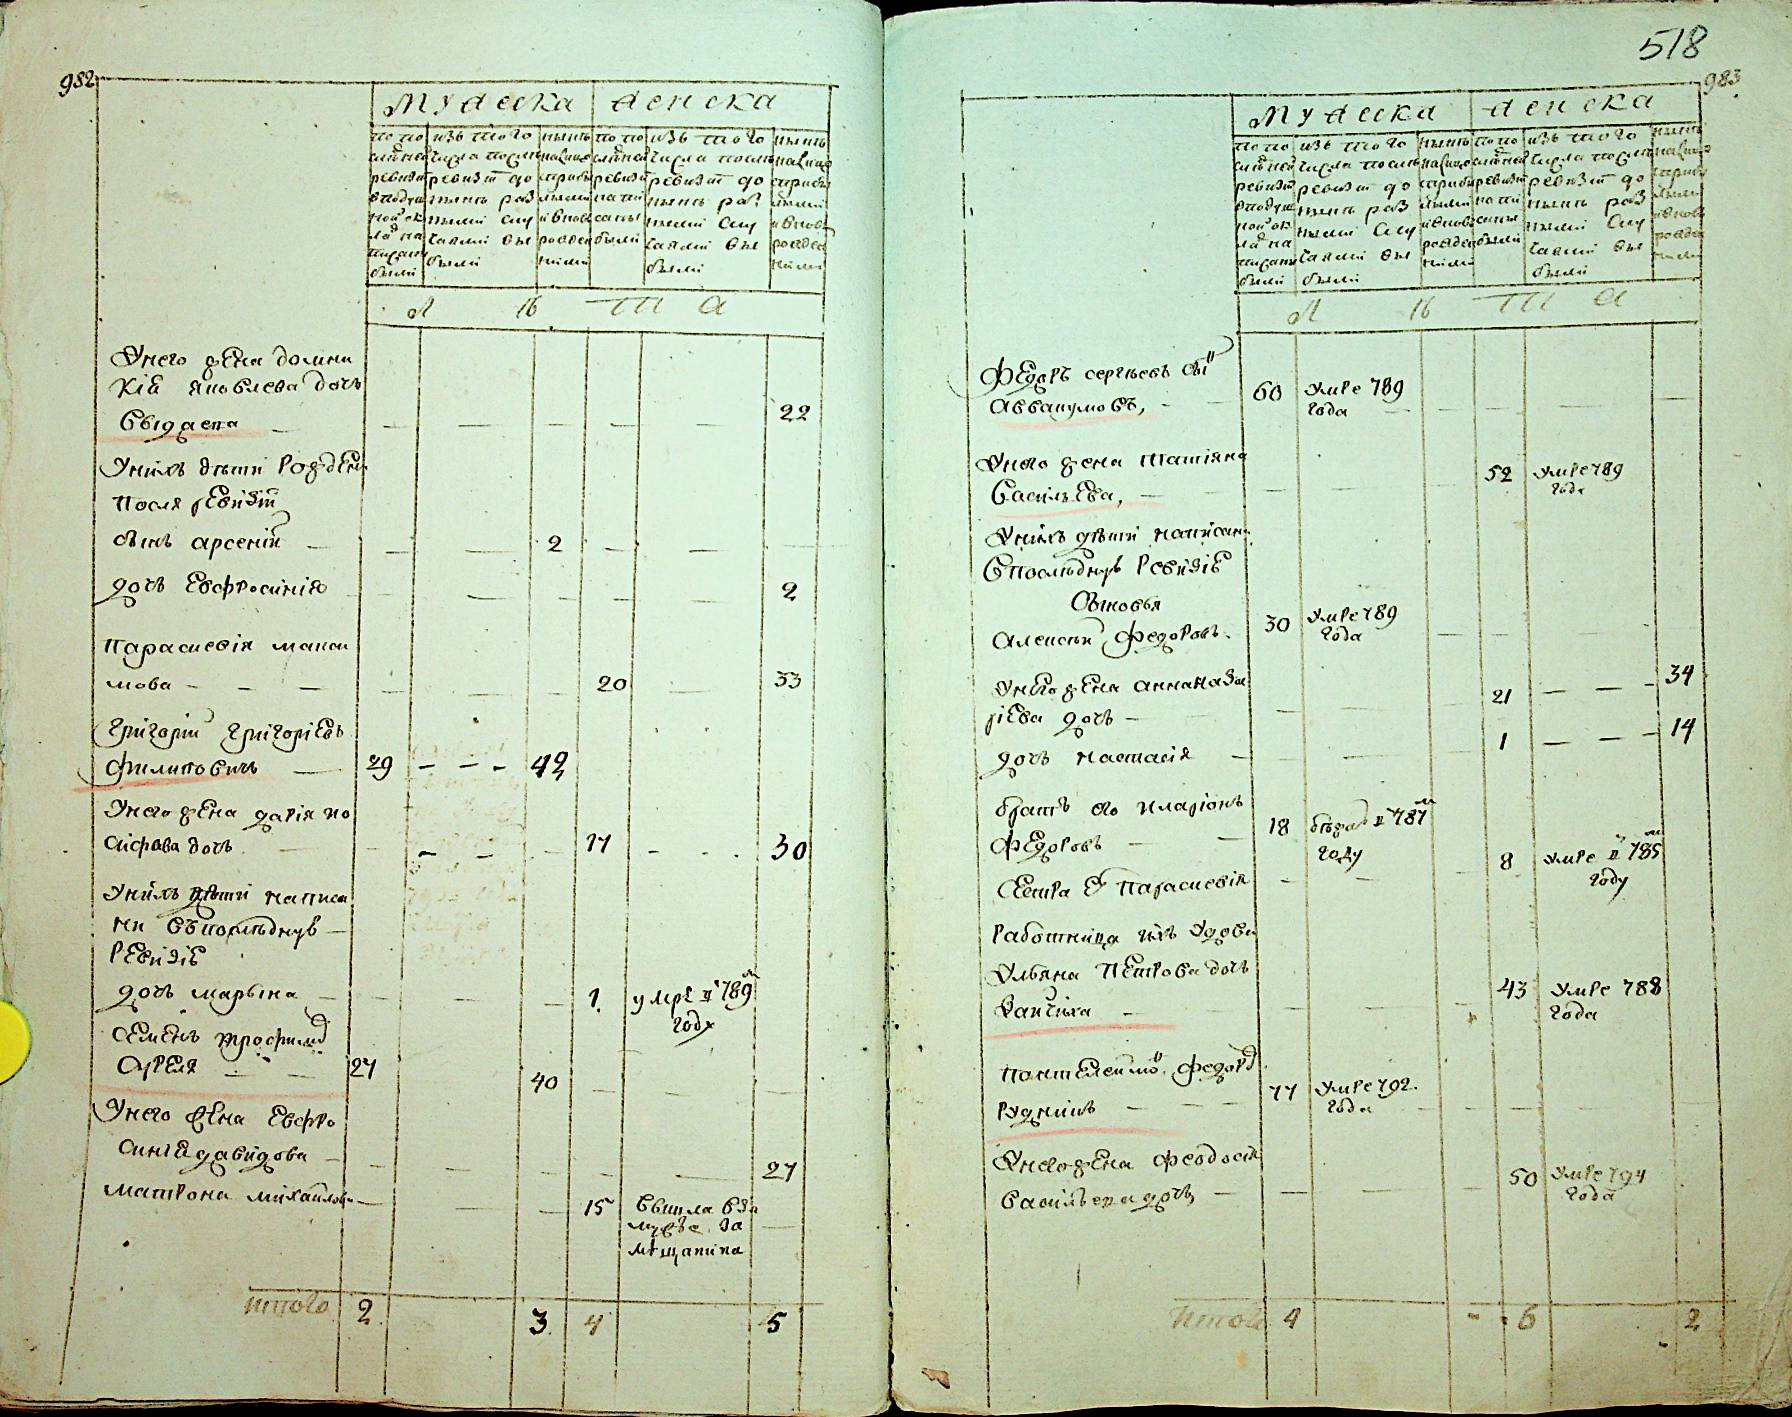 982
Мужеска
женска
по по
следней
ревизи
в подуш
ной ок
лад на
писаны
были
изъ того
числа после
ревизии до
ныне раз
ными слу
чаями вы
были
ныне
налицо
с прибы
лыми
и вновь
рожден
ными
по по
следней
ревизи
напи
саны
были
изъ того
числа после
ревизии до
ныне раз
ными слу
чаями вы
были
ныне
налицо
с прибы
лыми
и вновь
рожден
ными
Л Ѣ Т А
У него жена домни
кія яковлева дочь
22
У нихъ дѣти рожден
после ревизіи
сынъ арсеній 2
дочь Евфросинія 2
Парасковія макси
мова 20 33
Григорій григоріевъ
филиповичъ 29 42
У него жена дарія ио
сифова дочь 17 30
У нихъ дѣти написа
ни въ последнув
Ревизіе
дочь марьина 1 умре в 789м
году
Семенъ трофимов
27
40
У него жена Евфро
синія давидова 27
матрона михайлова 15 вышла въ за
мужъе за
мещанина
итого 2 3 4 5
518
983
Мужеска
женска
по по
следней
ревизи
в подуш
ной ок
лад на
писаны
были
изъ того
числа после
ревизии до
ныне раз
ными слу
чаями вы
были
ныне
налицо
с прибы
лыми
и вновь
рожден
ными
по по
следней
ревизи
напи
саны
были
изъ того
числа после
ревизии до
ныне раз
ными слу
чаями вы
были
ныне
налицо
с прибы
лыми
и вновь
рожден
ными
Л Ѣ Т А
Федоръ сергѣевъ сын
аввакумовъ, 60 умре 789
года
У него жена татіяна
васильева, 52 умре 789
года
У нихъ дѣти написани
в последнув Ревизіе
Сыновья
алексѣй федоровъ 30 умре 789
года
У него жена анна наза
ріева дочь 21 34
дочь настасія 1 14
братъ его иларіонъ
федоровъ 18 бежал в 787м
году
Сестра Ея парасковія 8 умре в 785м
году
Работница ихъ удова
Ульяна петрова дочь
43 умре 788
года
пантелеимон федоров
рудникъ 77 умре 792
года
У него жена феодосія
васильева дочь 50 умре 794
года
итого 4 6 2